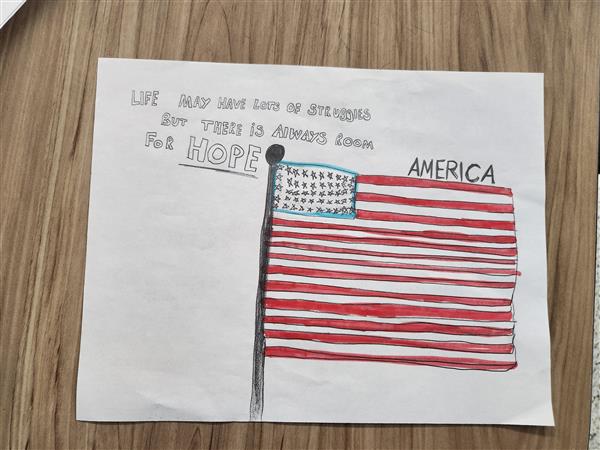 LIFE MAY HAVE LOTS OF STRUGGLES
BUT THERE IS ALWAYS ROOM
FOR HOPE
AMERICA